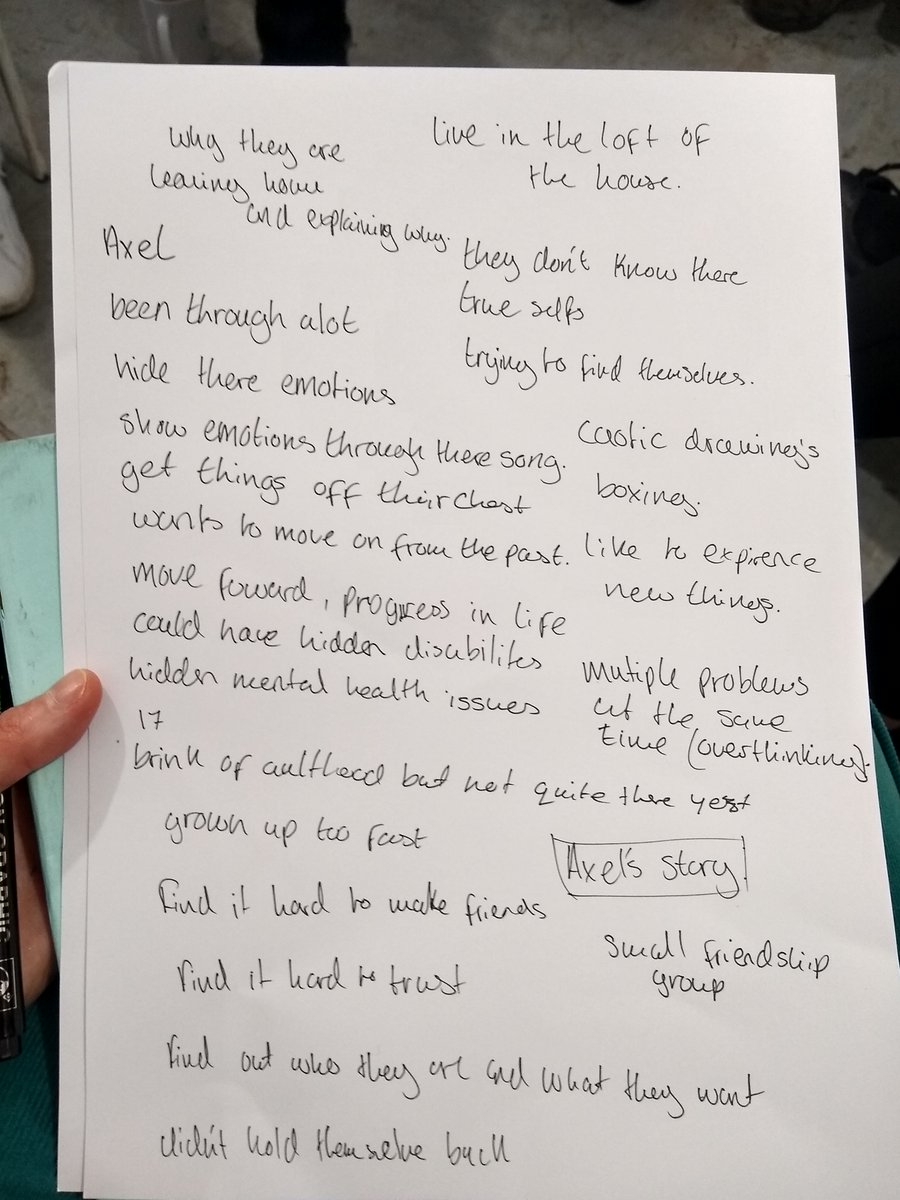 why they are
leaving home
and explaining why.
live in the loft of
the house.
Axel
been through alot
hide there emotions
show emotions through there song.
get things off their chest
wants to move on from the past.
move foward, progress in life
could have hidden disabilites
hidden mental health issues
17
brink of aulthead but not quite there yest
grown up too fast
find it hard to make friends
find it hard to trust
find out who they are and what they want
didn't hold themselve back
they don't know there
true selfs
trying to find themselves.
caotic drawing's
boxing.
like to expirence
new things.
mutiple problems
at the same
time (overthinking).
Axel's story
small friendship
group